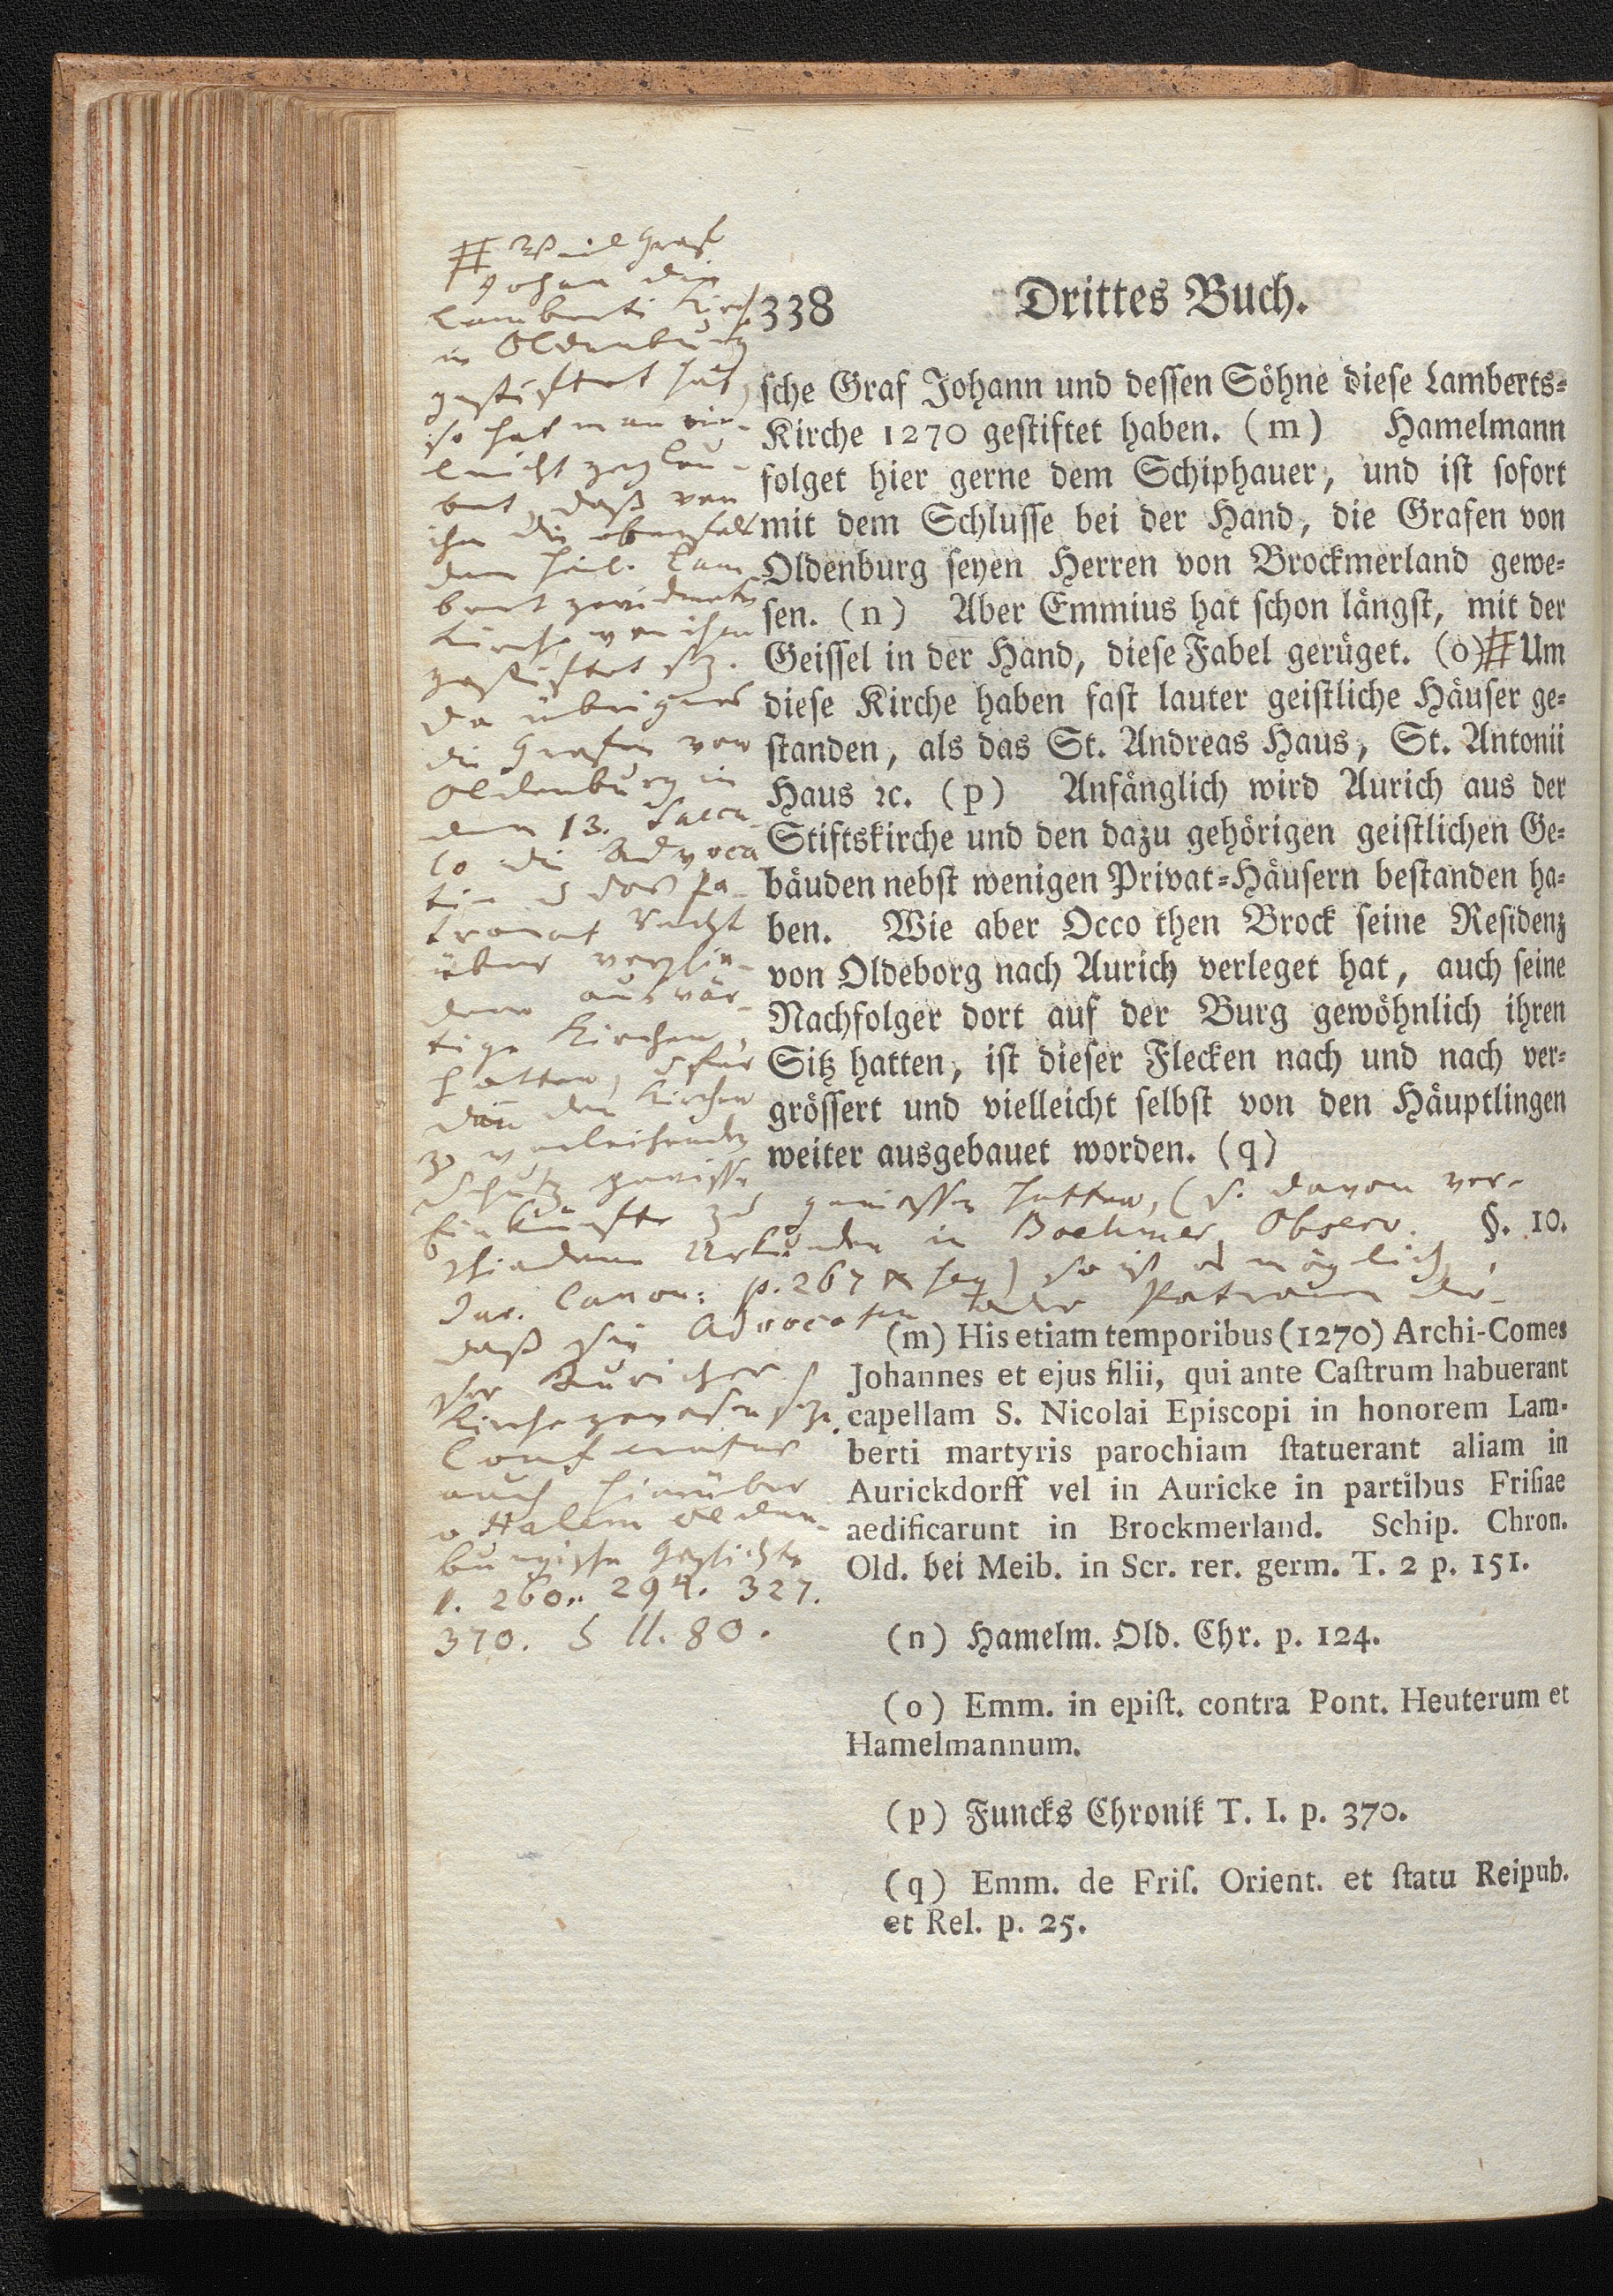 338 Drittes Buch.
sche Graf Johann und dessen Söhne diese Lamberts-
Kirche 1270 gestiftet haben. (m) Hamelmann
folget hier gerne dem Schiphauer, und ist sofort
mit dem Schlusse bei der Hand, die Grafen von
Oldenburg seyen Herren von Brockmerland gewe-
sen. (n) Aber Emmius hat schon längst, mit der
Geissel in der Hand, diese Fabel gerüget. (o) # Um
diese Kirche haben fast lauter geistliche Häuser ge-
standen, als das St. Andreas Haus, St. Antonii
Haus ꝛc. (p) Anfänglich wird Aurich aus der
Stiftskirche und den dazu gehörigen geistlichen Ge-
bäuden nebst wenigen Privat-Häusern bestanden ha-
ben. Wie aber Occo then Brock seine Residenz
von Oldeborg nach Aurich verleget hat, auch seine
Nachfolger dort auf der Burg gewöhnlich ihren
Sitz hatten, ist dieser Flecken nach und nach ver-
grössert und vielleicht selbst von den Häuptlingen
weiter ausgebauet worden. (q)
§. 10.
(m) His etiam temporibus (1270) Archi-Comes
Johannes et ejus filii, qui ante Castrum habuerant
capellam S. Nicolai Episcopi in honorem Lam-
berti martyris parochiam statuerant aliam in
Aurickdorff vel in Auricke in partibus Frisiae
aedificarunt in Brockmerland. Schip. Chron.
Old. bei Meib. in Scr. rer. germ. T. 2 p. 151.
(n) Hamelm. Old. Chr. p. 124.
(o) Emm. in epist. contra Pont. Heuterum et
Hamelmannum.
(p) Funcks Chronik T. I. p. 370.
(q) Emm. de Fris. Orient. et statu Reipub.
et Rel. p. 25.
# Weil Graf
Johan die
Lamberti Kirch
in Oldenburg
gestiftet hat,
so hat man
daß von
ihm die
dem heil. Lam
bert gewidmete
Kirche von ihm
gestiftet sey.
da übrigens
die Grafen von
Oldenburg in
dem 13. Saecu
lo die Advoca
tie u das Pa-
tronat Recht
über verschie-
dene auswär-
tige Kirchen
hatten, u für
den den Kirchen
zu verleihenden
Schutz gewisse
Einkünfte zu geniessen hatten, (v. davon ver-
schiedene Urkunden in Boehmer Observ.
Jur. Canon: p. 267 & seq) so ist es möglich,
daß sie Advocaten oder Patronen die-
ser Auricher
Kirche gewesen sey.
auch hierüber
v Halem Olden-
burgische Geschichte
1. 260. 294. 327.
370. II. 80.